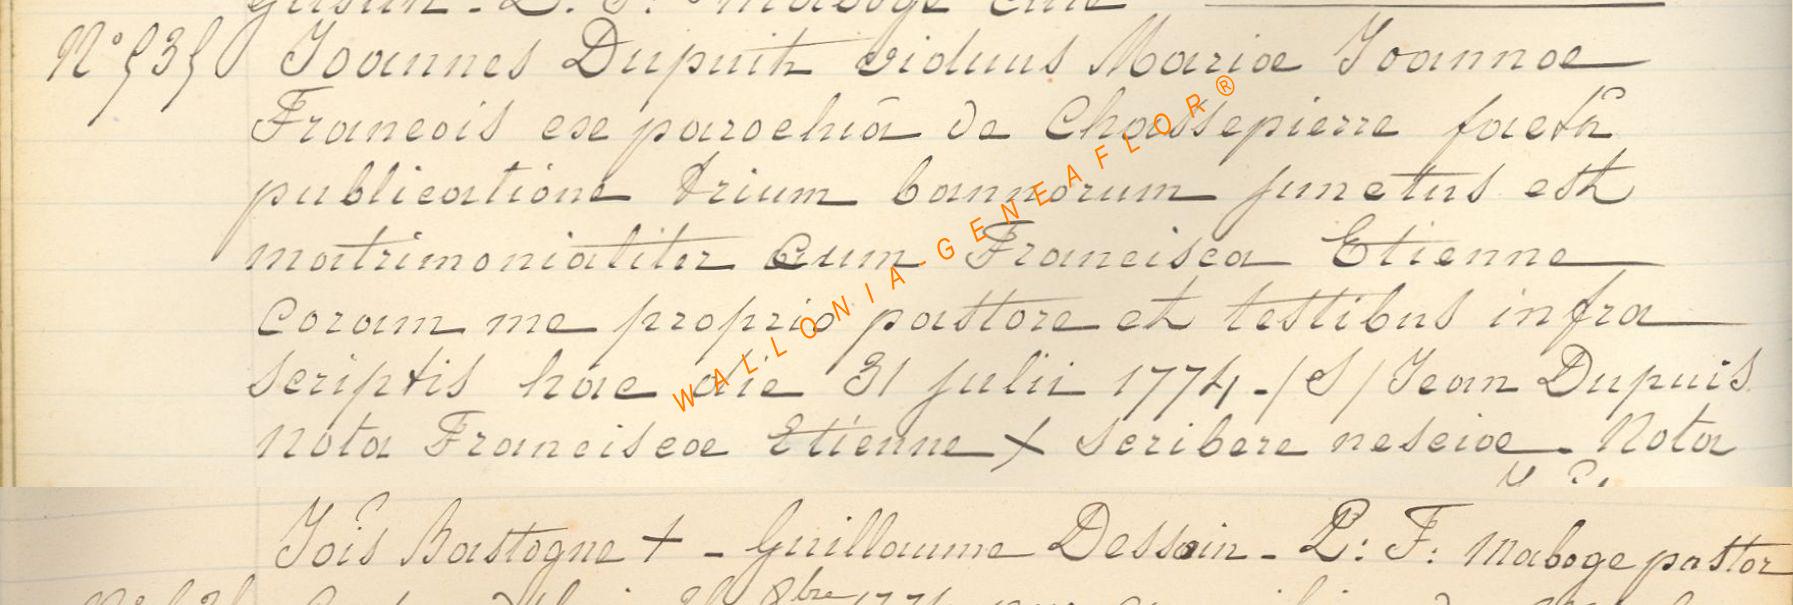 L. F. Maboge
N° 535 Joannes Dupuit viduus Mariae Joannae
Francois exe parochiâ de Chassepierre factâ
publicatione trium bannorum junctus est
matrimonialiter cum Francisca Etienne
Coram me proprio pastore et testibus infra
scriptis hac die 31 julii 1774 - /S/ Jean Dupuis
nota Franciscae Etienne + scribere nesciae - Nota
Jois Bastogne + - Guillaume Dessoin - L: F: Maboge pastor
8bre
WALLONIA-GENEAFLOR®